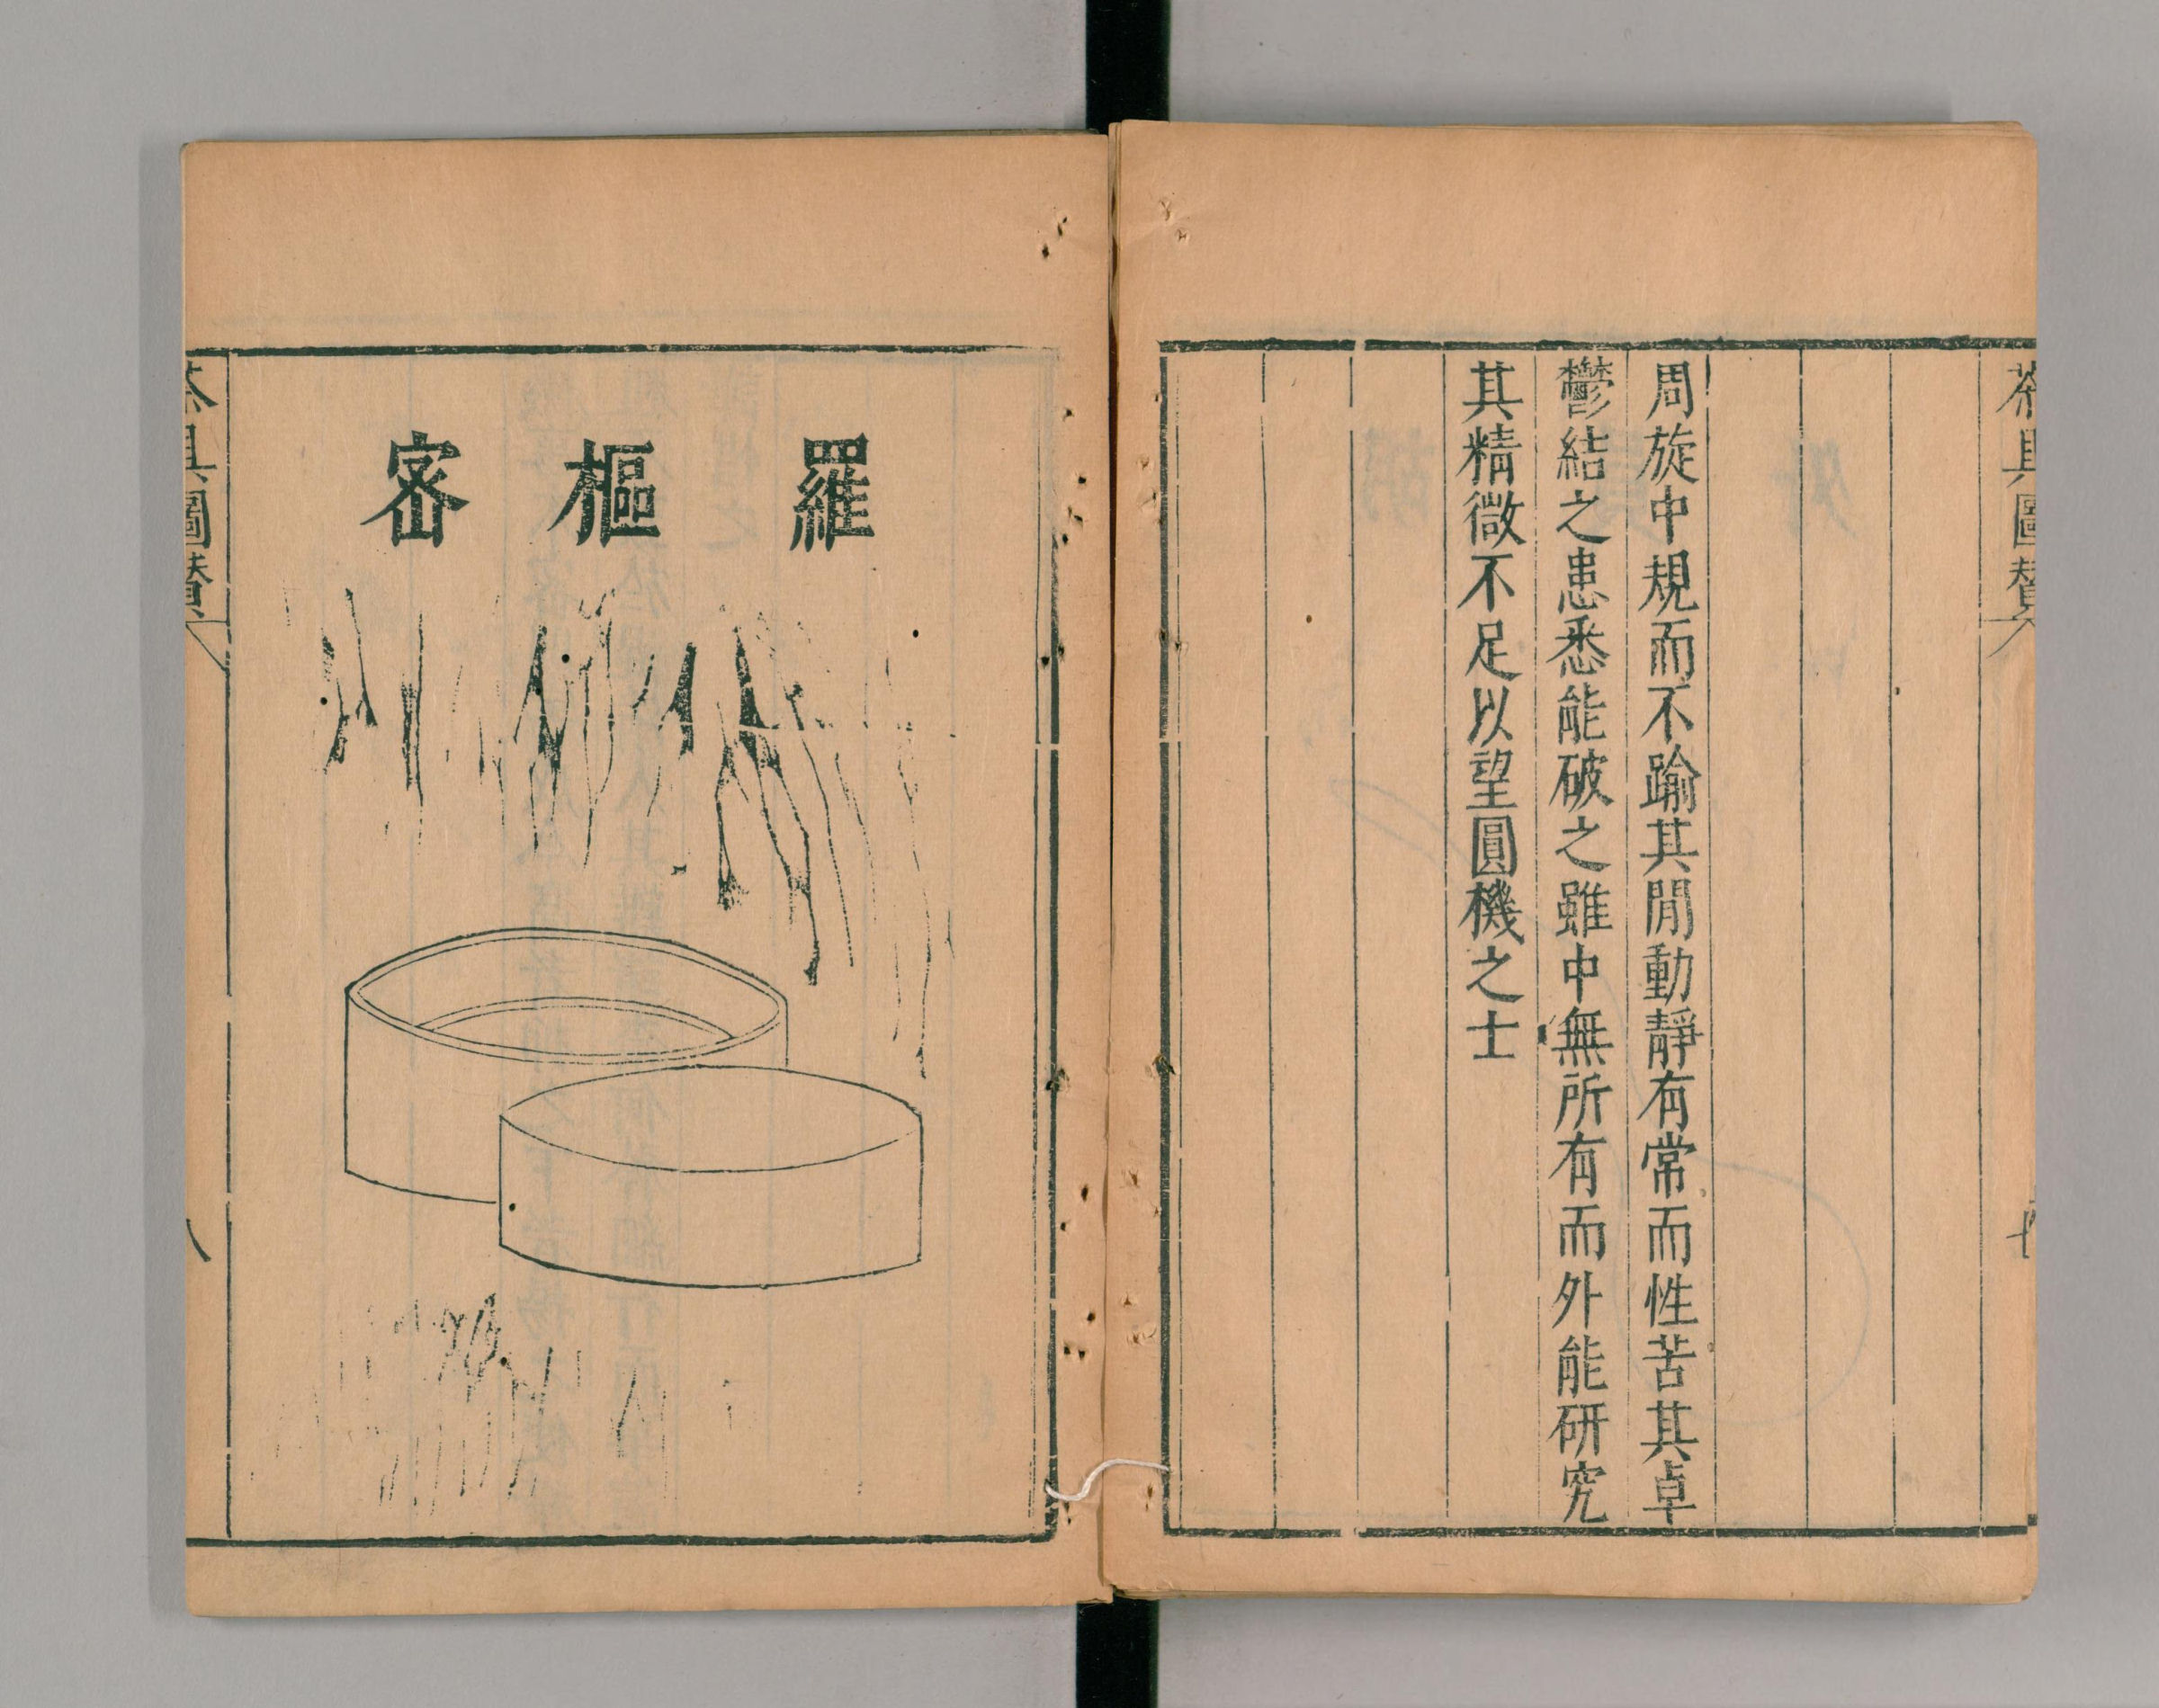 茶具圖贊
七
周旋中規而不踰其閒動靜有常而性苦其卓
鬱結之患悉能破之雖中無所有而外能研究
其精微不足以望圓機之士
羅樞密
茶具圖贊
八